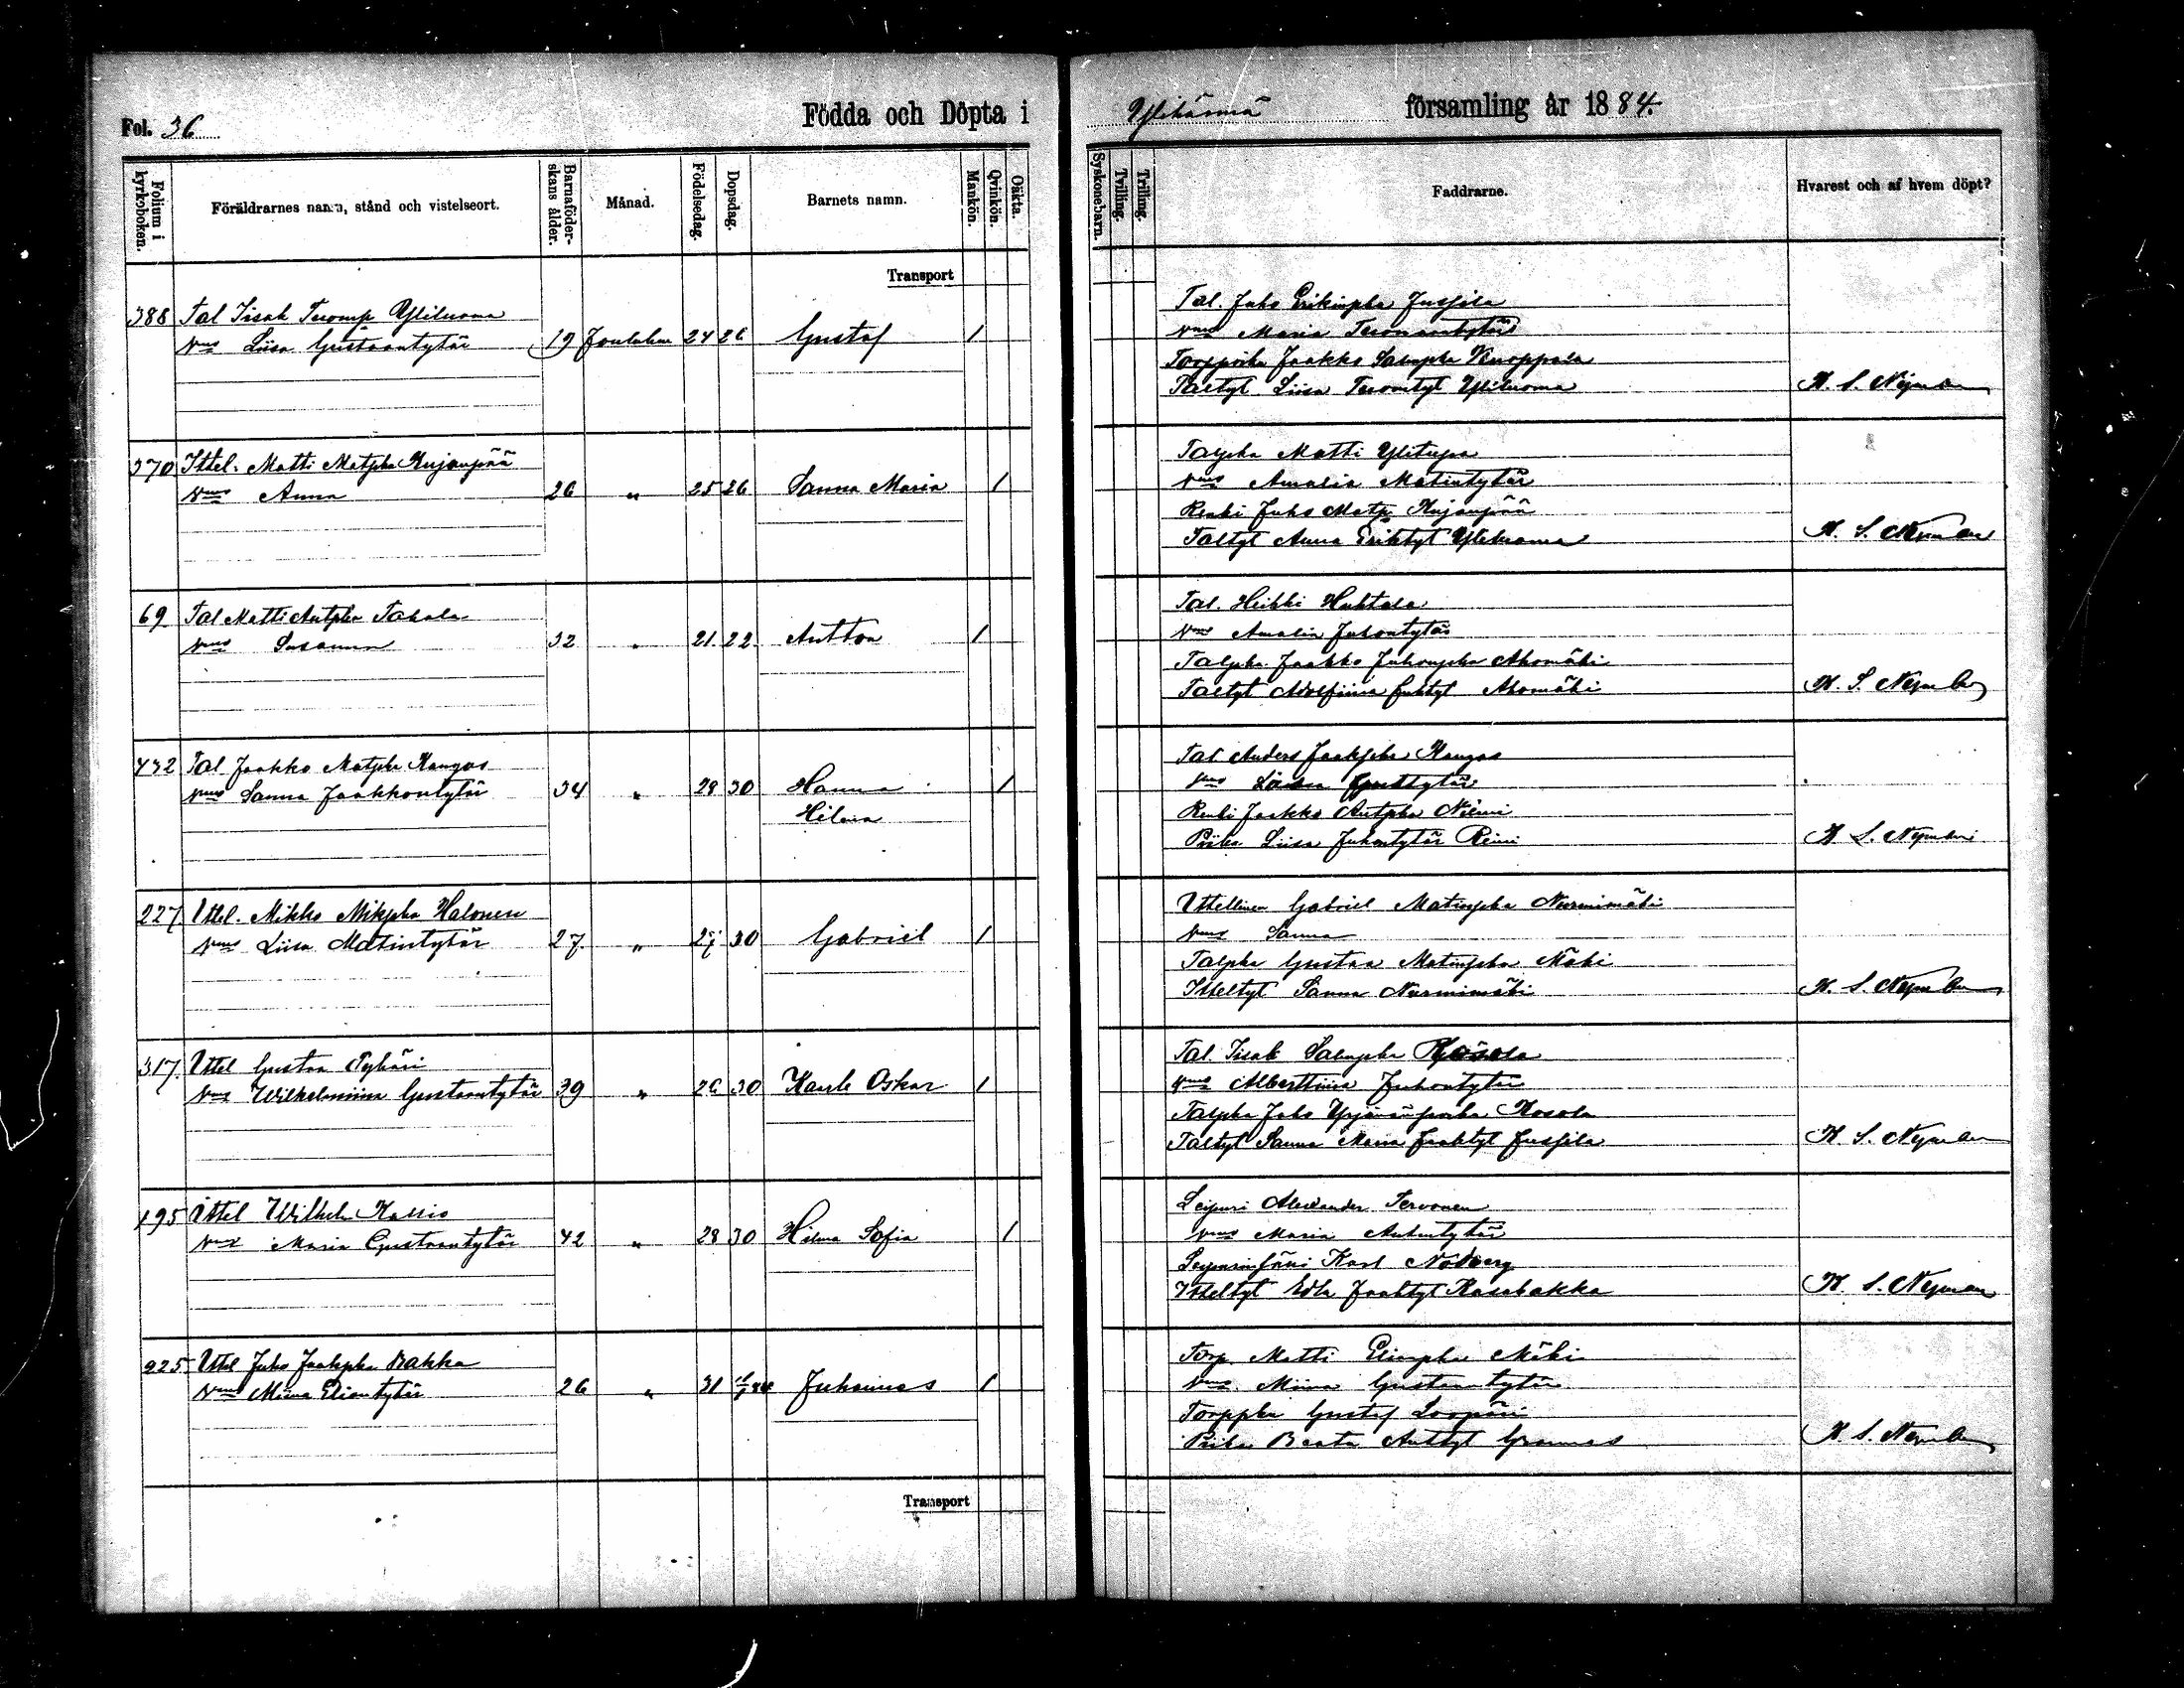 Fol. 36 Födda och Döpta i
Ylihärmä församling år 1884.
Folium i kyrkoboken.
Föräldrarnes namn, stånd och vistelseort.
Barnaföderskans ålder.
Månad.
Födelsedag.
Dopsdag.
Barnets namn.
Mankön.
Qvinkön.
Oäkta.
Syskonebarn.
Tvilling.
Trilling.
Faddrarne.
Hvarest och af hvem döpt?
Transport
388 Tal Iisak Tuomp Yliluoma
Vmo Liisa Gustaantytär 19 Joulukuu 24 26 Gustaf 1
Tal. Juho Erikinpka Jussila
Vmo Maria Tuomaantytär
Jaakko Salupka Knuppala
Taltyt Liisa Tuomtyt Yliluoma K. S. Nyman
370 Ittel. Matti Matpka Kujanpää
Vmo Anna 26 " 25 26 Sanna Maria 1
Talpka Matti Ylitupa
Vmo Amalia Matintytär
Renki Juho Matp Kujanpää
Taltyt Anna Eriktyt Yliluoma K. S. Nyman
69 Tal Matti Antpka Takala
Vmo Susanna 32 " 21. 22. Antton 1
Tal. Heikki Huhtala
Vmo Amalia Juhontytär
Talpka Jaakko Juhonpka Ahomäki
Taltyt Adolfiina Juhtyt Ahomäki K. S. Nyman
432 Tal Jaakko Matpka Kangas
Vmo Sanna Jaakkontytär 34 " 28 30 Hanna 1
Hilma
Tal Anders Jaakpka Kangas
Vmo Gusttytär
Renki Jaakko Antpka Niemi
Piika Liisa Juhontytär K S. Nyman
227. Ittel. Mikko Mikpka Halonen
Vmo Liisa Matintytär 27. " 27 30 Gabriel 1
Ittellinen Gabriel Matinpka Nurmimäki
Vmo Sanna
Talpka Gustaa Matinpka Mäki
Itteltyt Sanna Nurmimäki K. S. Nyman
317. Ittel Gustaa Pyhäri
Vmo Wilhelmiina Gustaantytär 39 " 26 30 Kaarle Oskar 1
Tal. Iisak Salupka Kosola
Vmo Alberttiina Juhontytär
Talpka Juho Kosola
Taltyt Sanna Maria Jaaktyt Jussila K. S. Nyman
195 Ittel Wilhelm Kallio
Vmo Maria Gustaantytär 42 " 28 30 Hilma Sofia 1
Leipuri Alexander Tervonen
Vmo Maria Antintytär
Karl
Itteltyt Edla Jaaktyt Kasabakka K. S. Nyman
225. Ittel Juho Jaakpka Bakka
Vmo Miina Eliantytär 26 " 31 Juhannes 1
Torp. Matti Elianpka Mäki
Vmo Miina Gustaantytär
Torppka Gustaf Loopäri
Piika Beata Anttyt K. S. Nyman
Transport